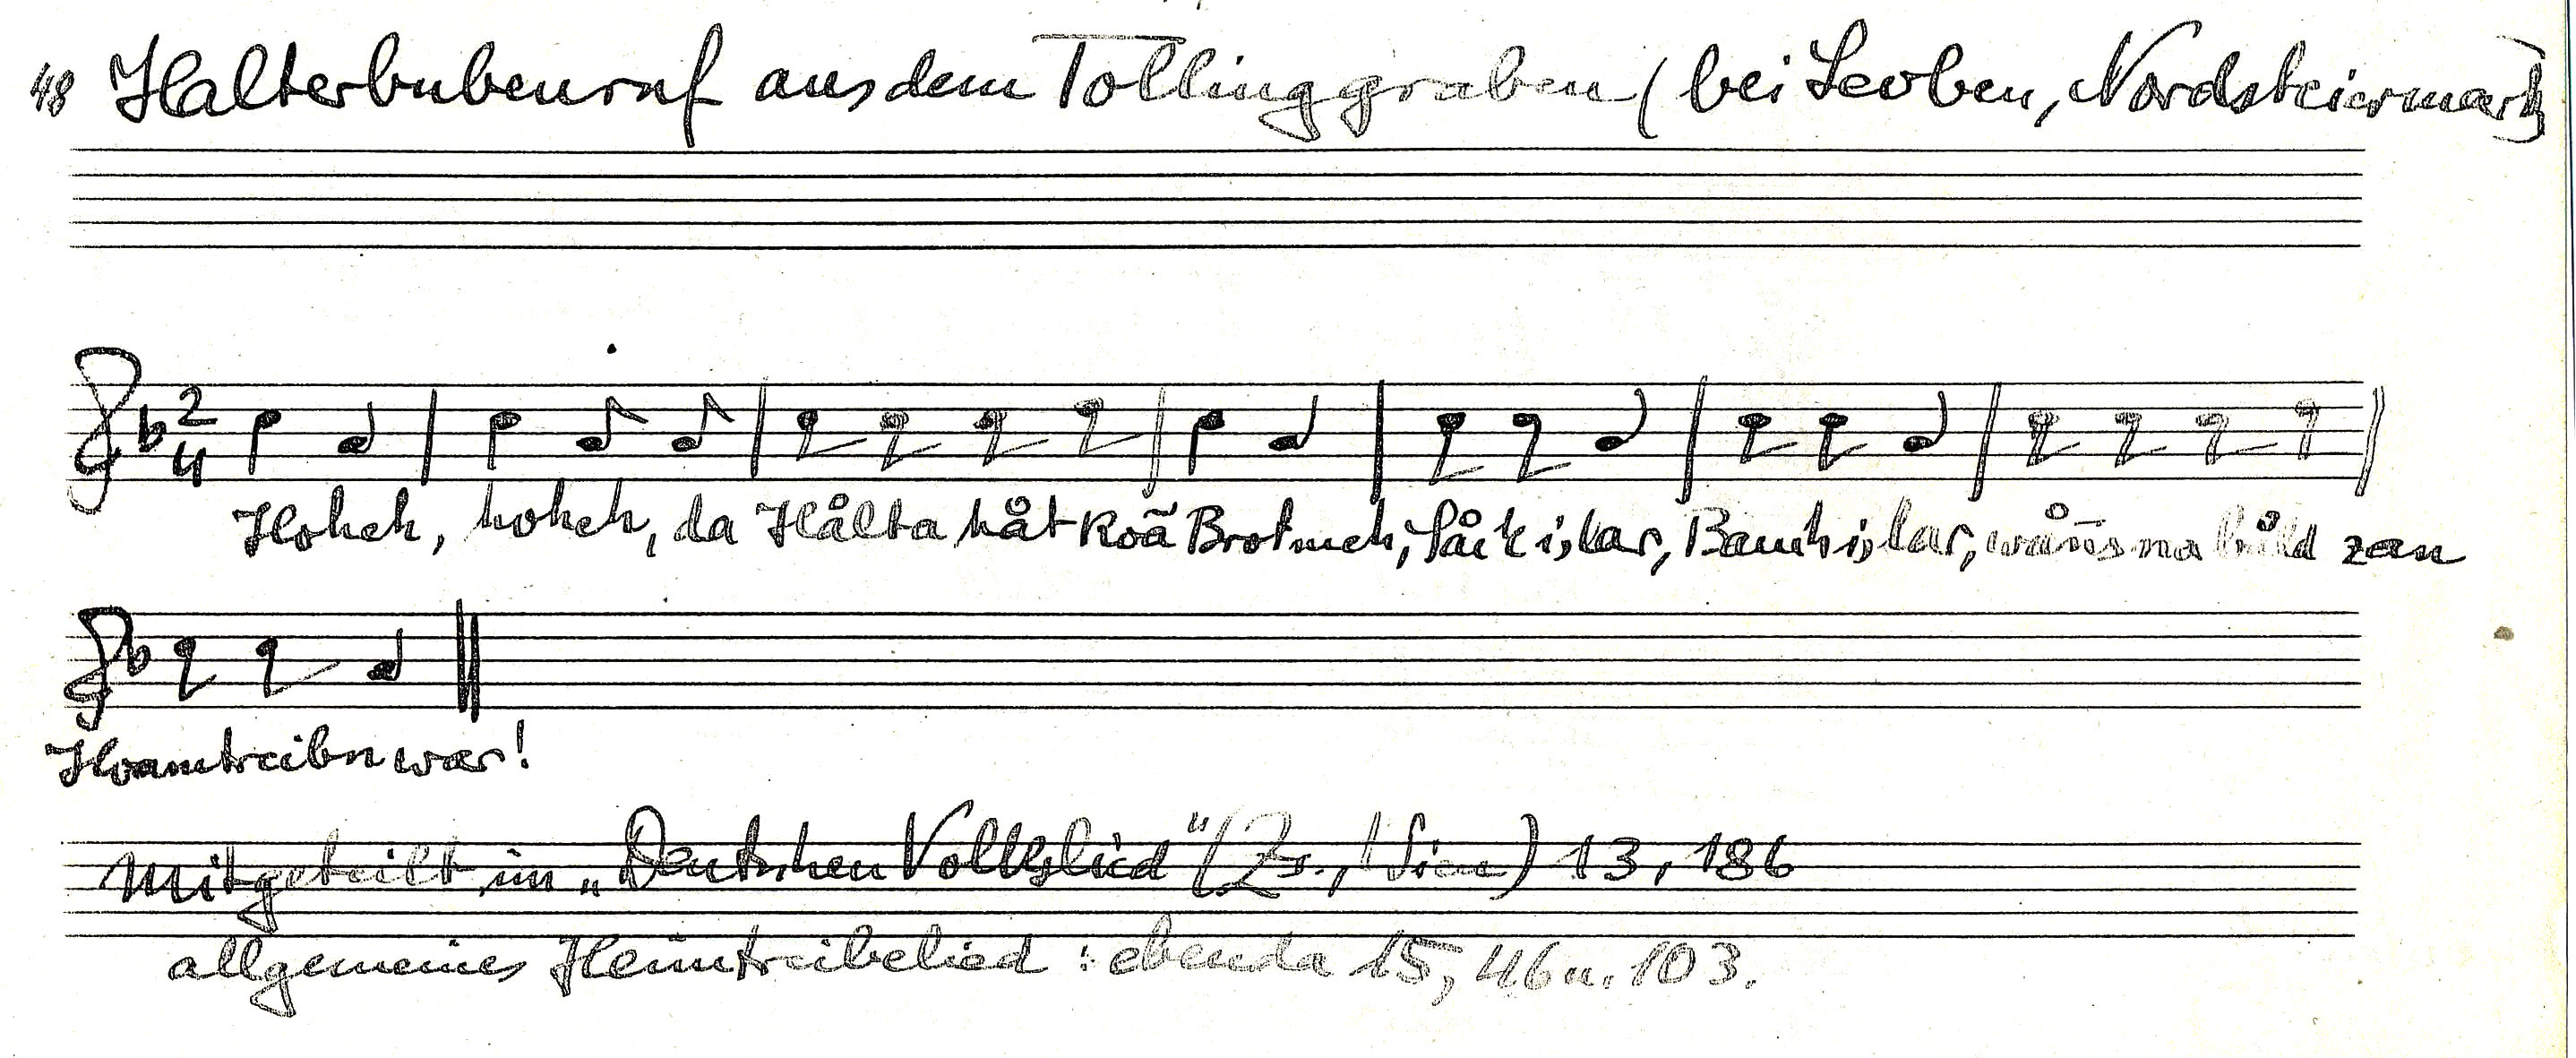 48 Halterbubenruf aus dem Tollinggraben (bei Leoben, Nordsteiermark)
2
4
Hoheh, hoheh, da Hålta håt koã Brot meh, Såck is lar, Bauch is lar, wåñs na båld zan
Hoamtreibn war!
Mitgeteilt im „Deutschen Volkslied" (Zs., Wien) 13, 186
allgemeines Heimtreibelied : ebenda 15, 46 u. 103.